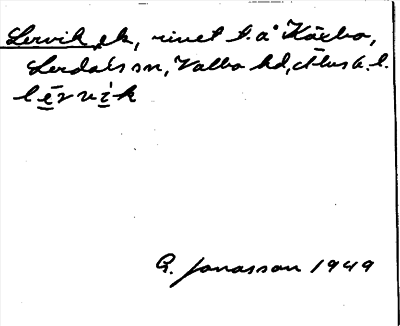 Lervik, ek, rivet t. å Kärbo,
Lerdals sn, Valbo hd, Älvsb. l.
lẹrvịk
G. Jonasson 1949